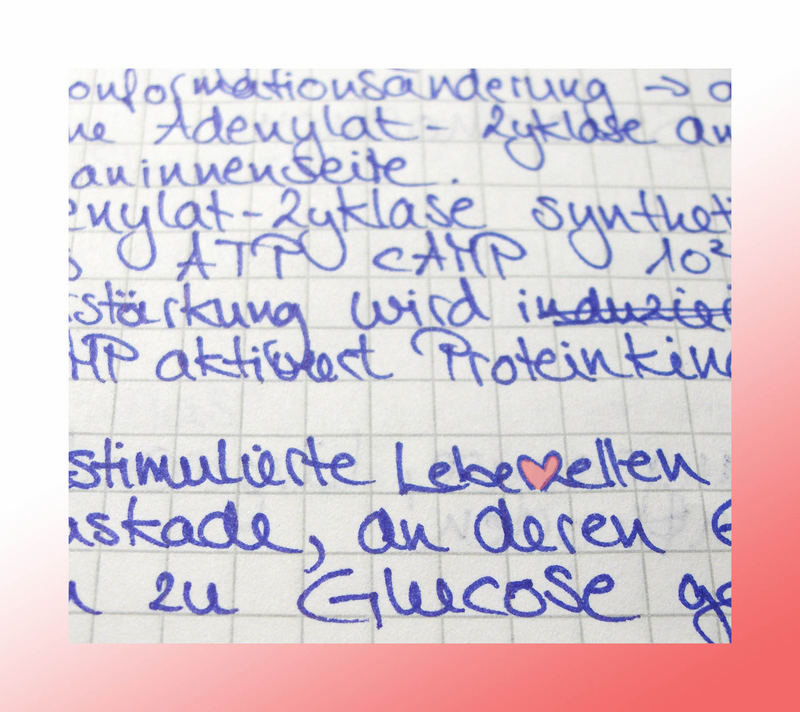 onformationsänderung → a
ne Adenylat-Zyklase an
aninnenseite.
enylat-Zyklase synthet
s ATP cAMP 10²
stärkung wird induziei
MP aktiviert Proteinkin
stimulierte Lebe♥ellen
askade, an deren E
n zu Glucose ge